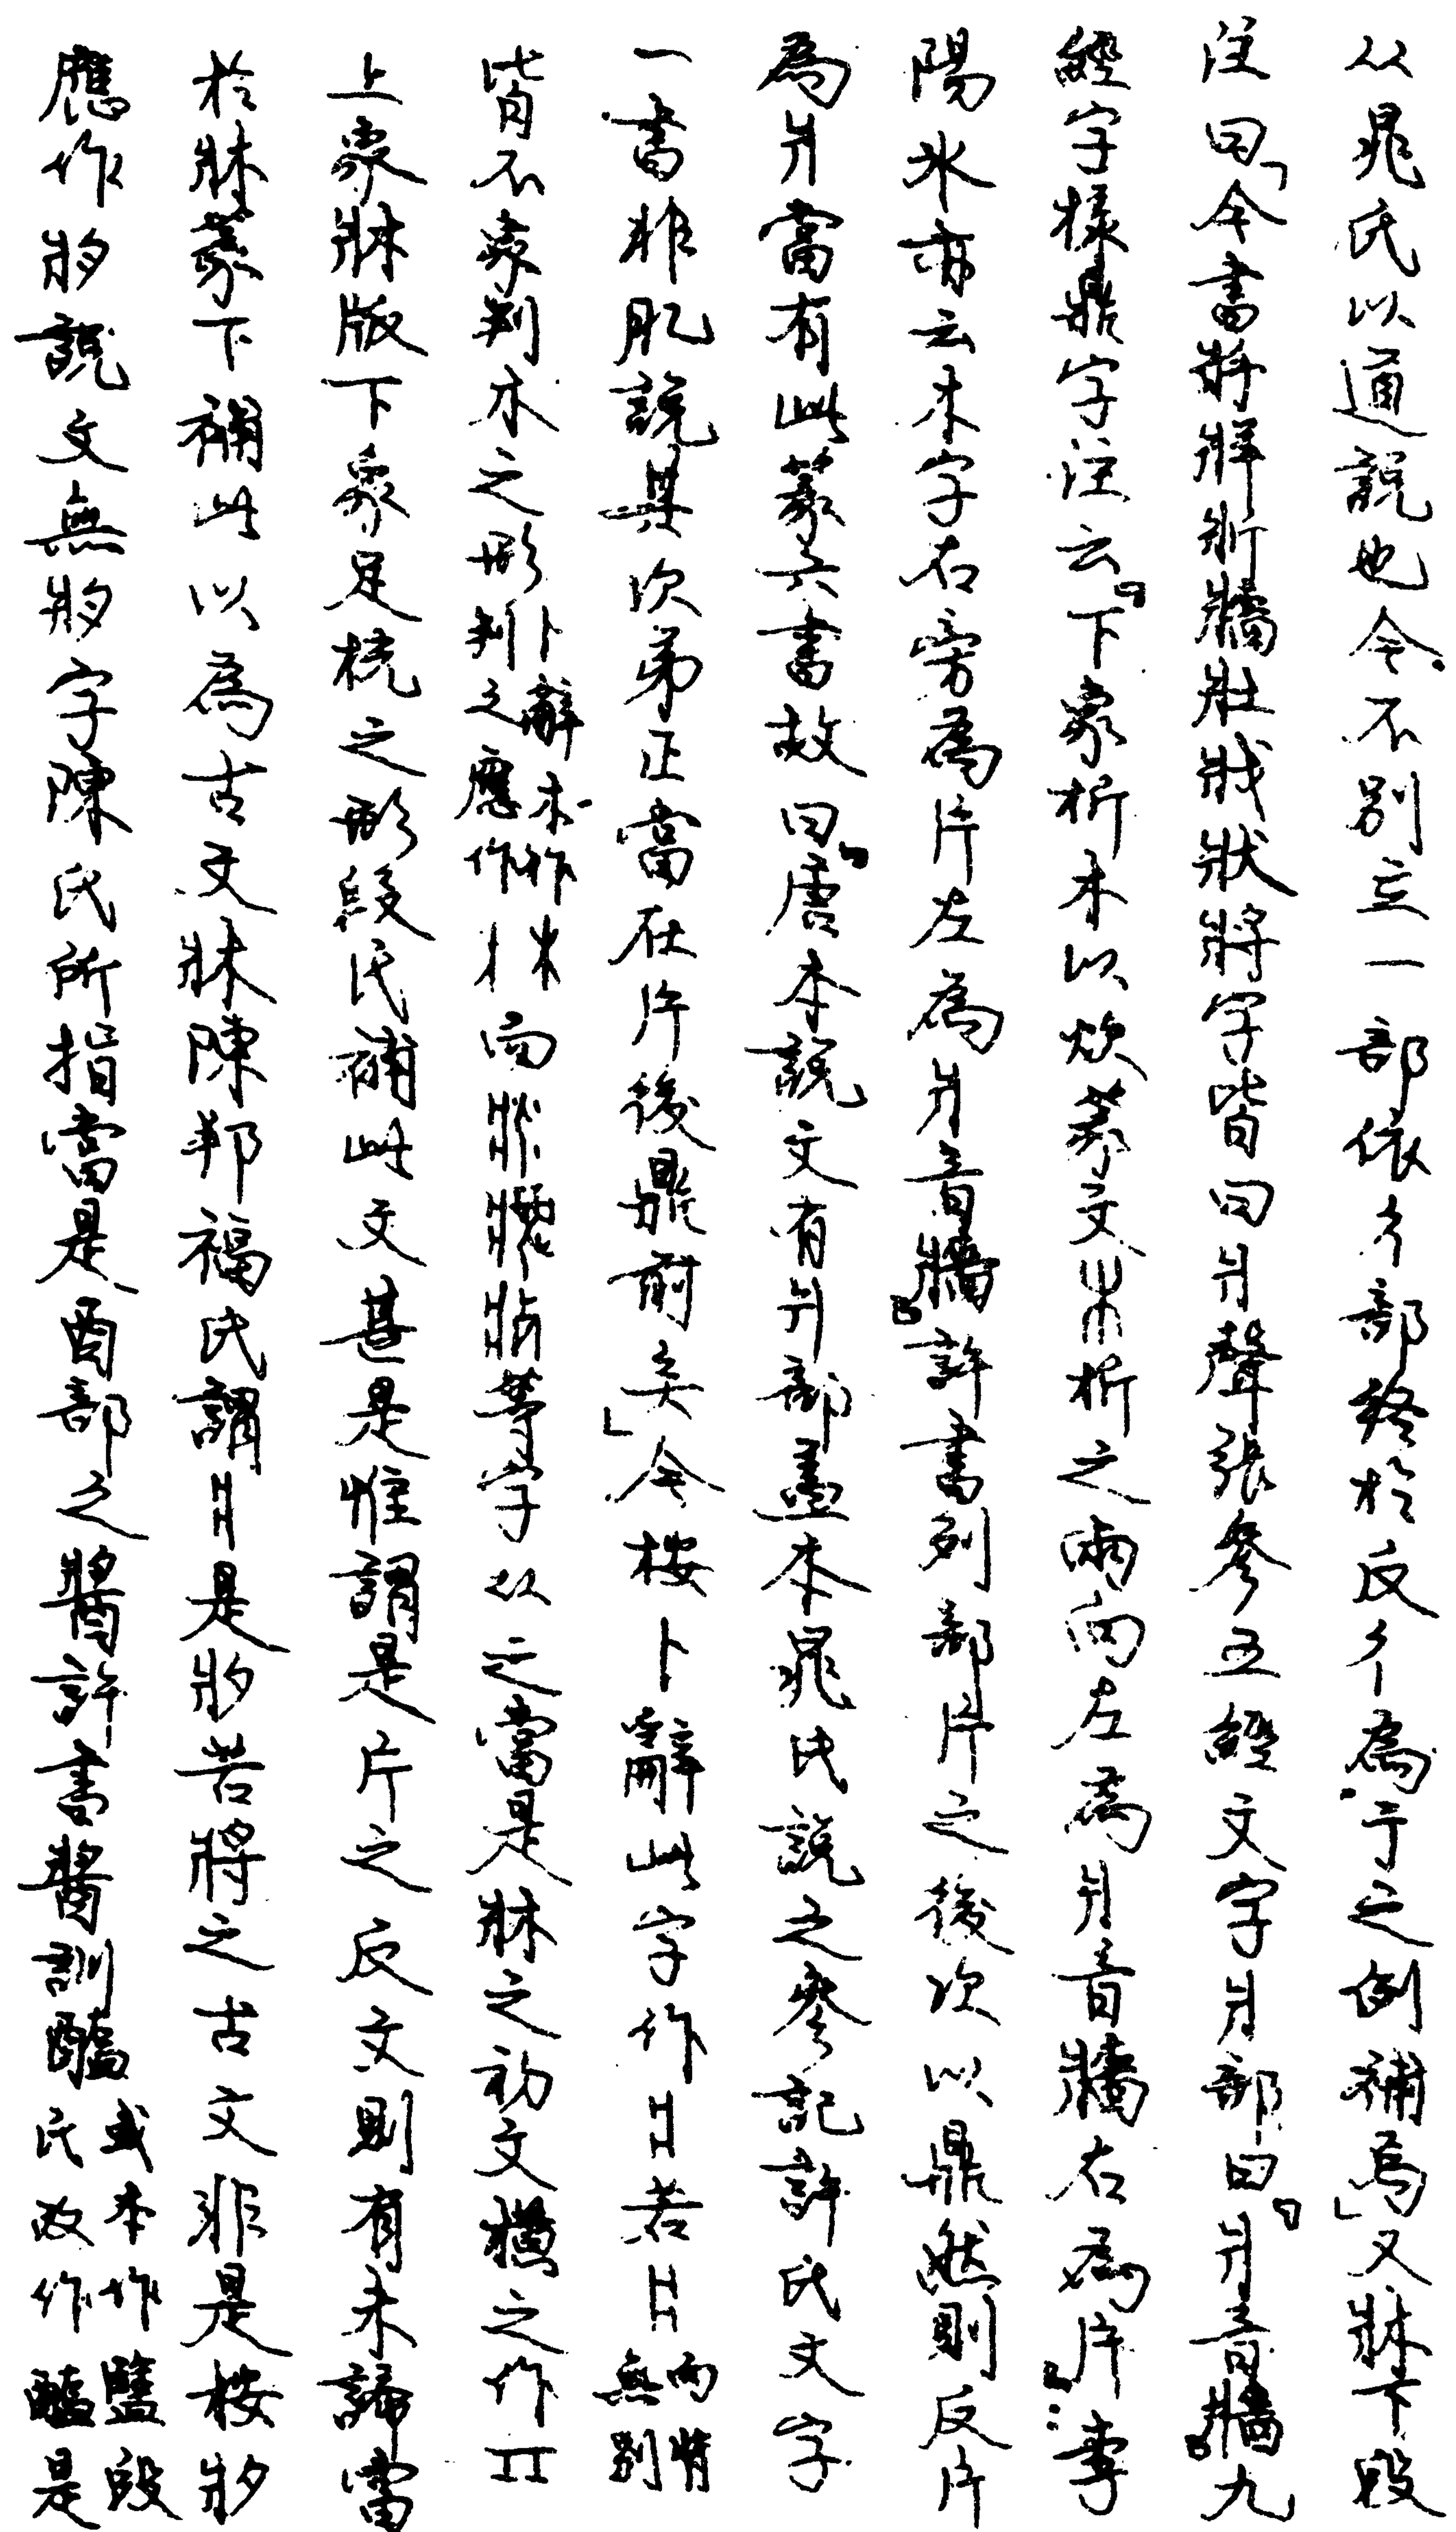 从鼂氏以道說也今不别立一部依彳部終於反彳為亍之例補焉」又牀下段
注曰「今書將牂斨牆壯戕狀將字皆曰爿聲張參五經文字爿部曰『爿音牆』九
經字樣鼎字注云『下象析木以炊篆文𣎳析之兩向左為爿音牆右為片』李
陽冰亦云木字右旁為片左為爿音牆』許書列部片之後次以鼎然則反片
為爿當有此篆六書故曰『唐本說文有爿部蓋本鼂氏說之參記許氏文字
一書非肊說其次弟正當在片後鼎前矣」今桉卜辭此字作爿若爿兩情無别
皆不象判木之形卜辭木作𣎳判之應作 而 等字从之當是牀之初文橫之作
上象牀版下象足桄之形段氏補此文甚是惟謂是片之反文則有未諦當
於牀篆下補此以為古文牀陳邦福氏謂爿是𤕭若將之古文非是桉𤕭
應作𤕭說文無𤕭字陳氏所指當是酉部之醬許書醬訓醢或本作盬段氏改作醢是